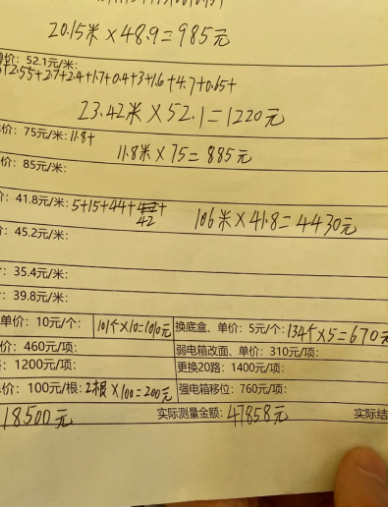 20.15米×48.9=985元
价: 52.1元/米:
+2.55+2.7+2.4+1.7+0.4+3+1.6+4.7+0.65+
23.42米×52.1=1220元
价: 75元/米: 11.8+
11.8米×75=885元
价: 85元/米:
价: 41.8元/米: 5+15+44+42
106米×41.8=4430元
: 45.2元/米:
: 35.4元/米:
: 39.8元/米:
单价: 10元/个: 101个×10=1010元 换底盒、单价: 5元/个: 134个×5=670元
价: 460元/项: 弱电箱改面、单价: 310元/项:
: 1200元/项: 更换20路: 1400元/项:
价: 100元/根: 2根×100=200元 强电箱移位: 760元/项:
18500元 实际测量金额: 47858元 实际结